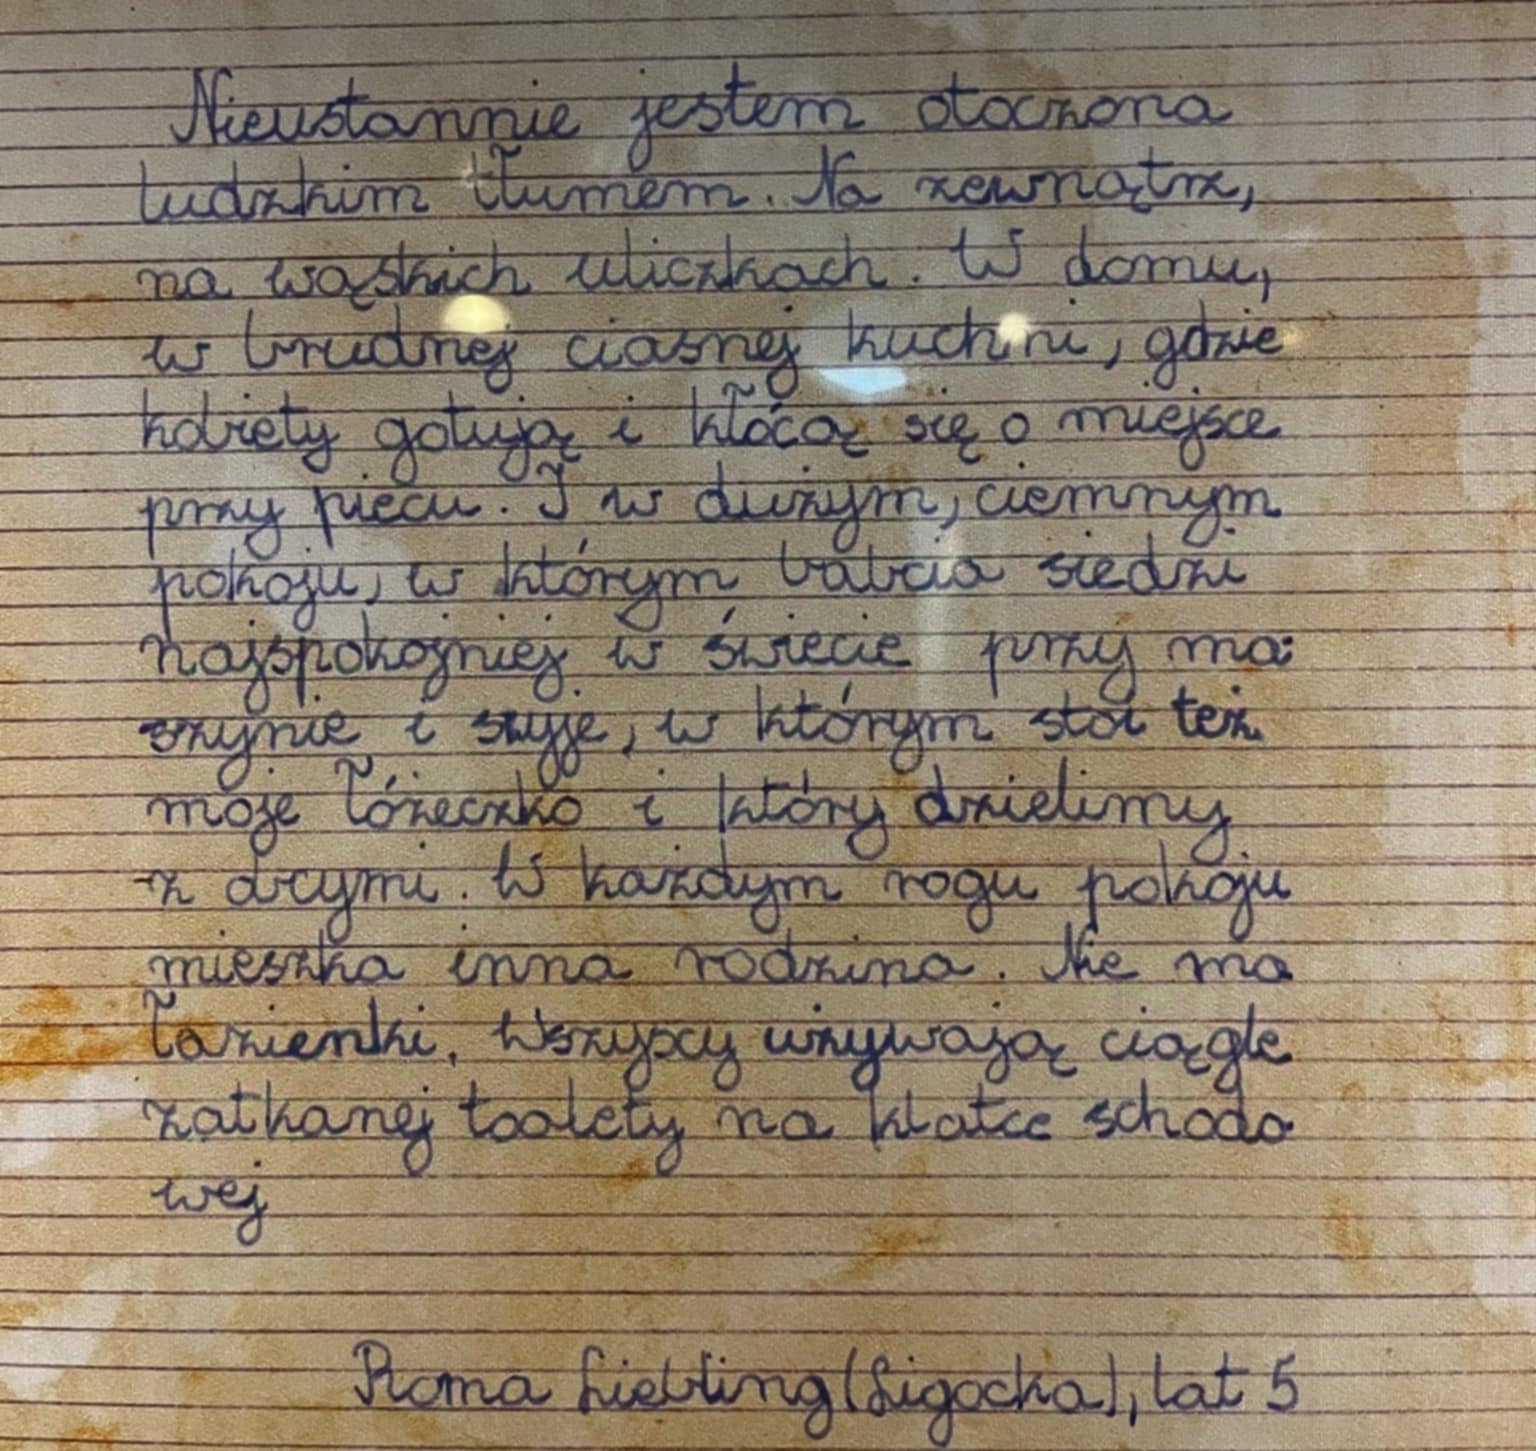 Nieustannie jestem otoczona
ludzkim tłumem. Na zewnątrz,
na wąskich uliczkach. W domu,
w brudnej ciasnej kuchni, gdzie
kobiety gotują i kłócą się o miejsce
przy piecu. I w dużym, ciemnym
pokoju, w którym babcia siedzi
najspokojniej w świecie przy ma-
szynie i szyje, w którym stoi też
moje łóżeczko i który dzielimy
z ibcymi. W każdym rogu pokoju
mieszka inna rodzina. Nie ma
łazienki. Wszyscy używają ciągle
zatkanej toalety na klatce schodo
wej
Roma Liebling (Ligocka), lat 5